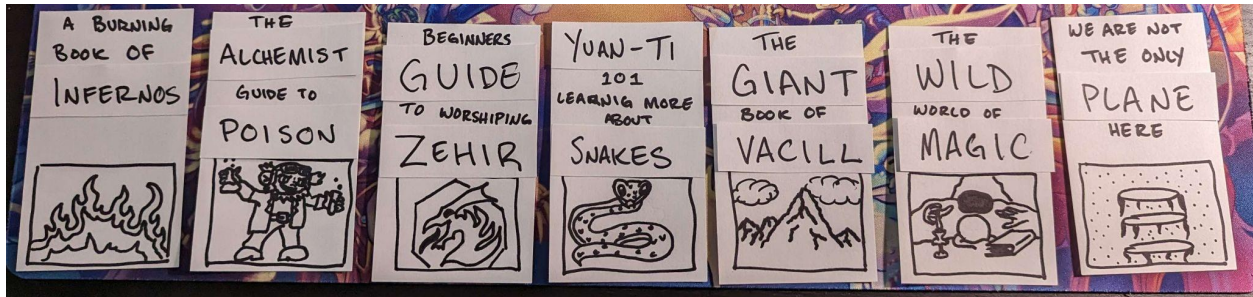 A BURNING
BOOK OF
INFERNOS
THE
ALCHEMIST
GUIDE TO
POISON
BEGINNERS
GUIDE
TO WORSHIPING
ZEHIR
YUAN-TI
101
LEARNIG MORE
ABOUT
SNAKES
THE
GIANT
BOOK OF
VACILL
THE
WILD
WORLD OF
MAGIC
WE ARE NOT
THE ONLY
PLANE
HERE